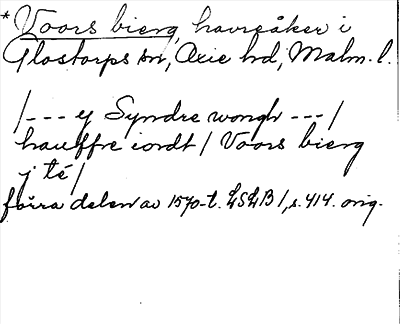 * Voors bierg, havreåker i
Glostorps sn, Oxie hd, Malm. l.
/--- y Syndre wongh ---/
hauffre iordt / Voors bierg
j té /
förra delen av 1570-t. LSLB 1, s. 414. orig.